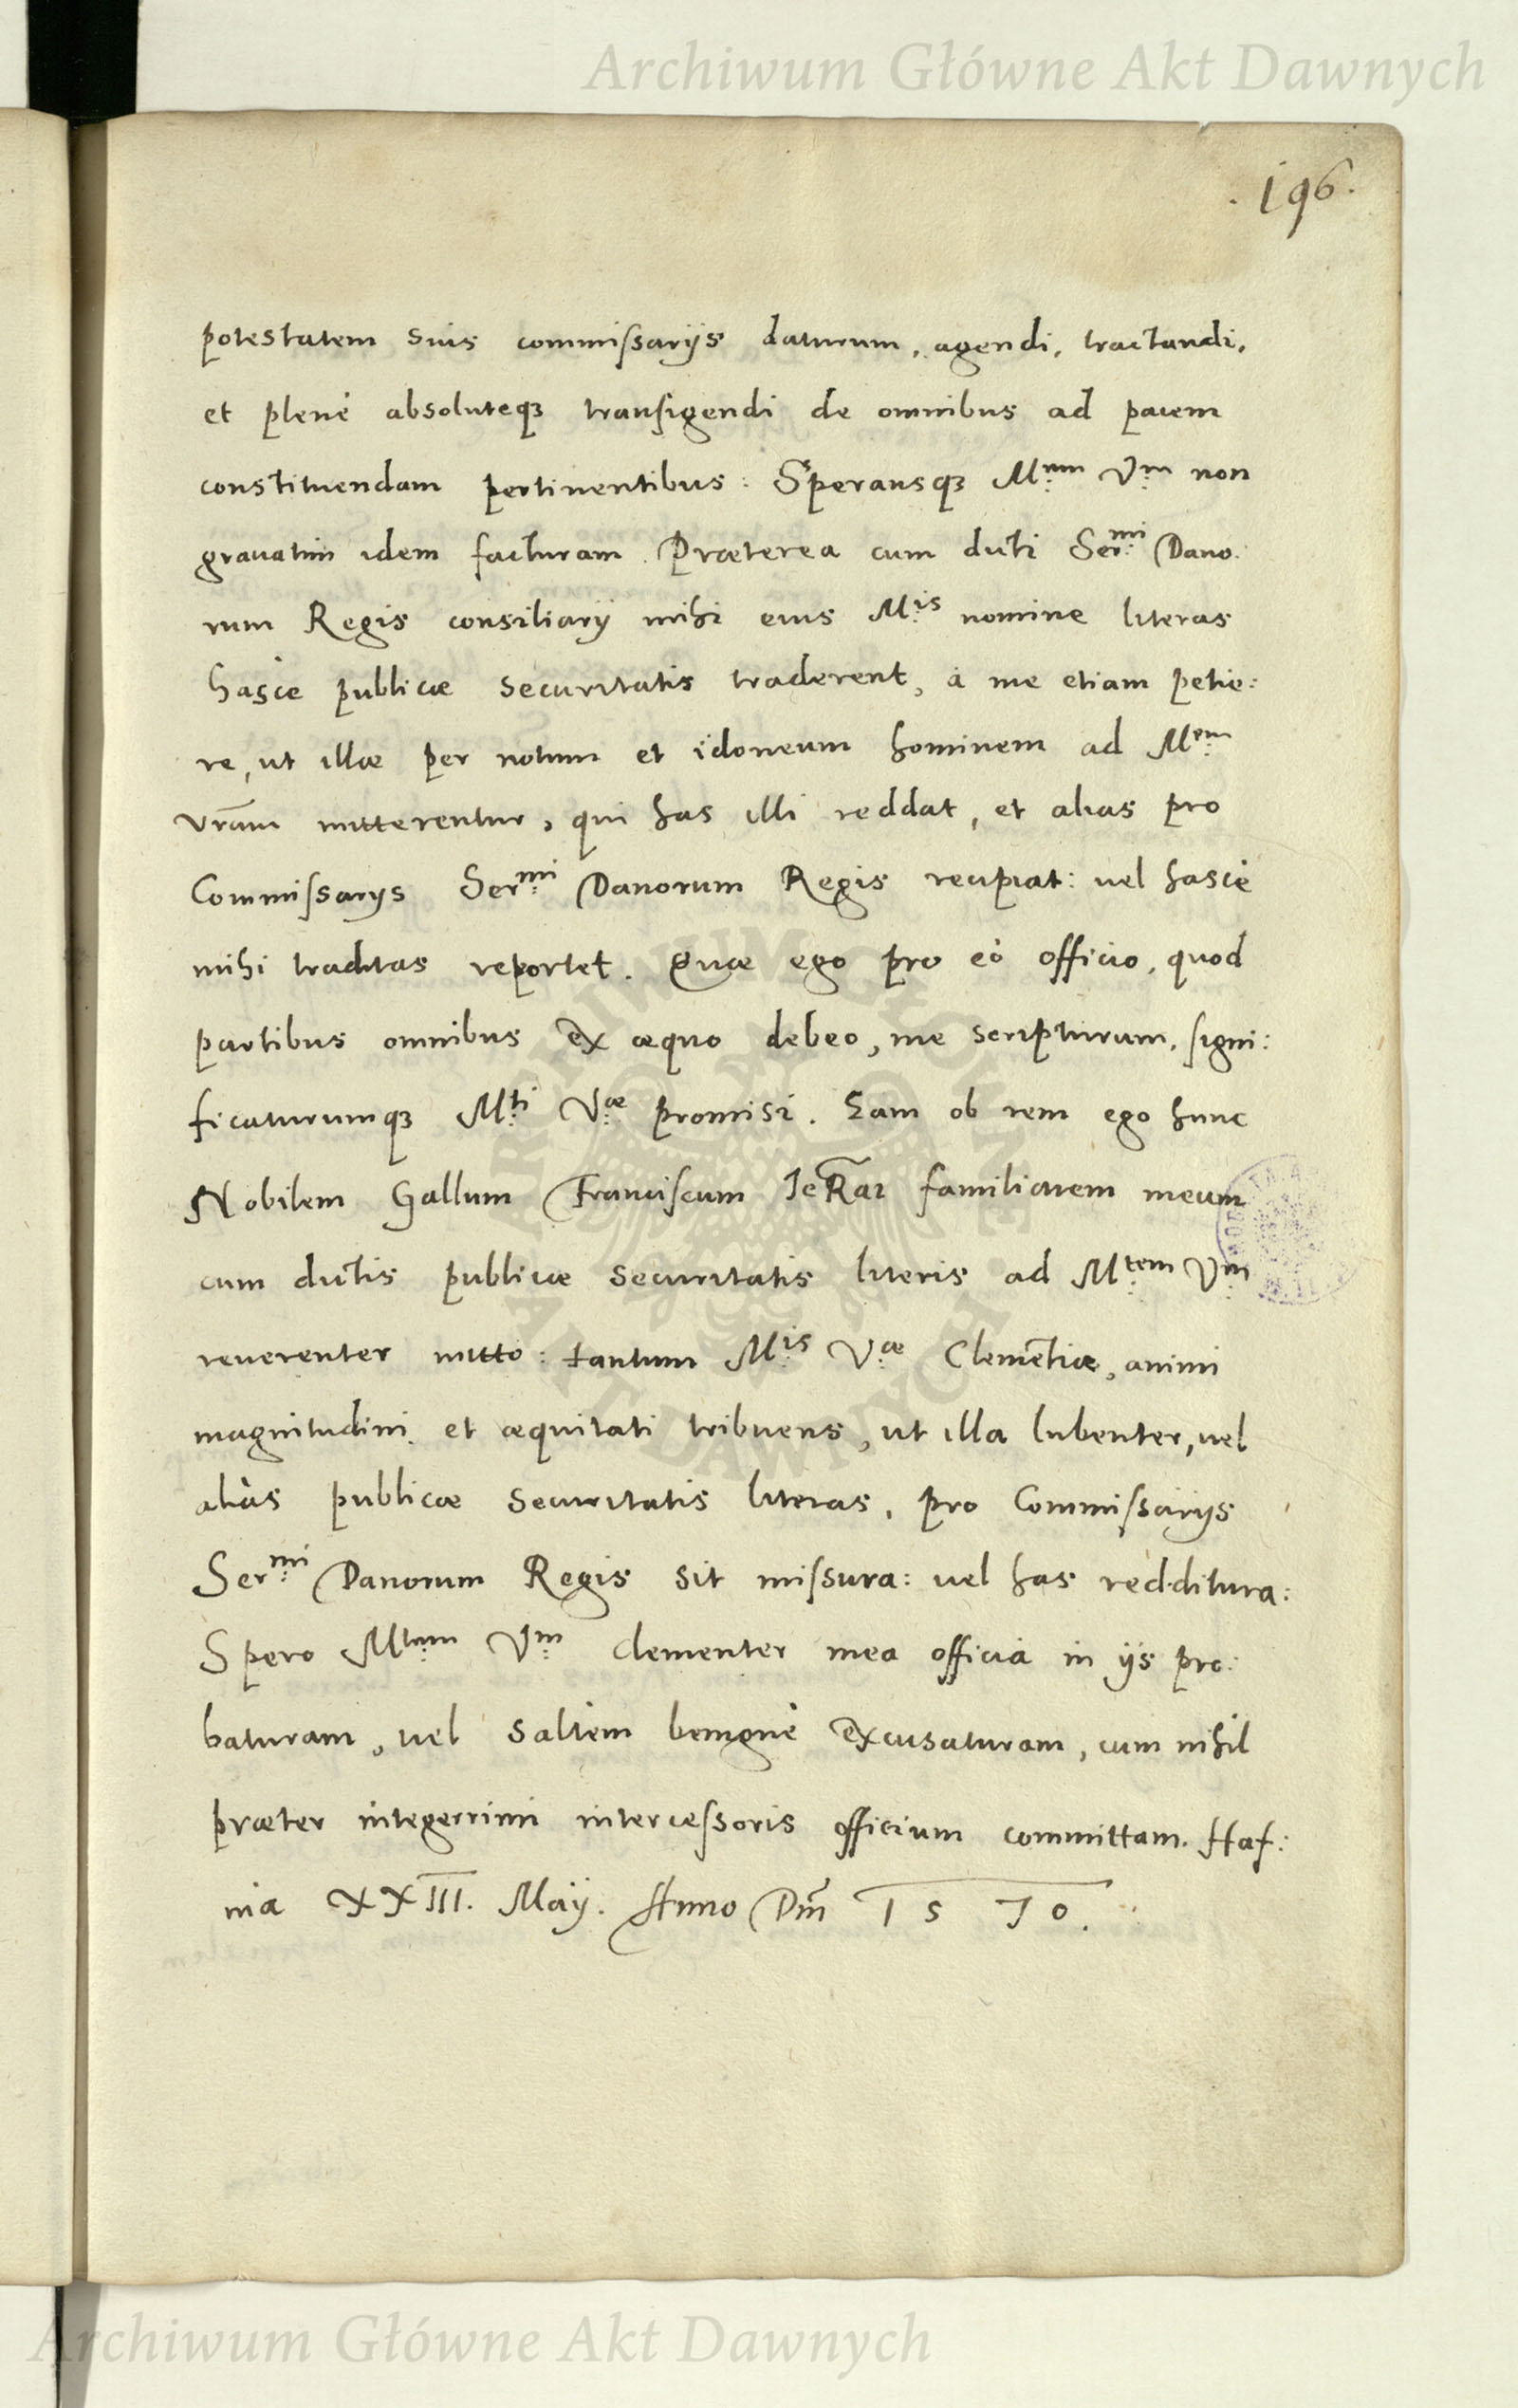 Archiwum Główne Akt Dawnych
. 196 .
potestatem suis commissariis daturum, agendi, tractandi,
et plenè absoluteq3 transigendi de omnibus ad pacem
constituendam pertinentibus: Speransq3 M.tem V.m non
gravatim idem facturam. Præterea cum dicti Ser.mi Dano:
rum Regis consiliarij mihi eius M.tis nomine literas
hasce publicæ securitatis traderent, à me etiam petie:
re, ut illæ per notum et idoneum hominem ad M.em
vram mitterentur, qui has illi reddat, et alias pro
Commissarijs Ser.mi Danorum Regis recipiat: vel hasce
mihi traditas reportet. Quæ ego pro eò officio, quod
partibus omnibus ex æquo debeo, me scripturum, signi:
ficaturumq3 M.ti V.æ promisi. Eam ob rem ego hunc
Nobilem Gallum Franciscum familiarem meum
cum dictis publicæ securitatis literis ad M.tem V.m
reverenter mitto: tantum M.tis V.æ Clementiæ, animi
magnitudini et æquitati tribuens, ut illa lubenter, vel
alias publicæ securitatis literas, pro Commissarijs
Ser.mi Danorum Regis sit missura: vel has redditura:
Spero M.tem V.m clementer mea officia in ijs pro:
baturam, vel saltem benignè excusaturam, cum nihil
præter integerrimi intercessoris officium committam. Haf:
nia XXIII. Maij. Anno Dni 1570.
Archiwum Główne Akt Dawnych